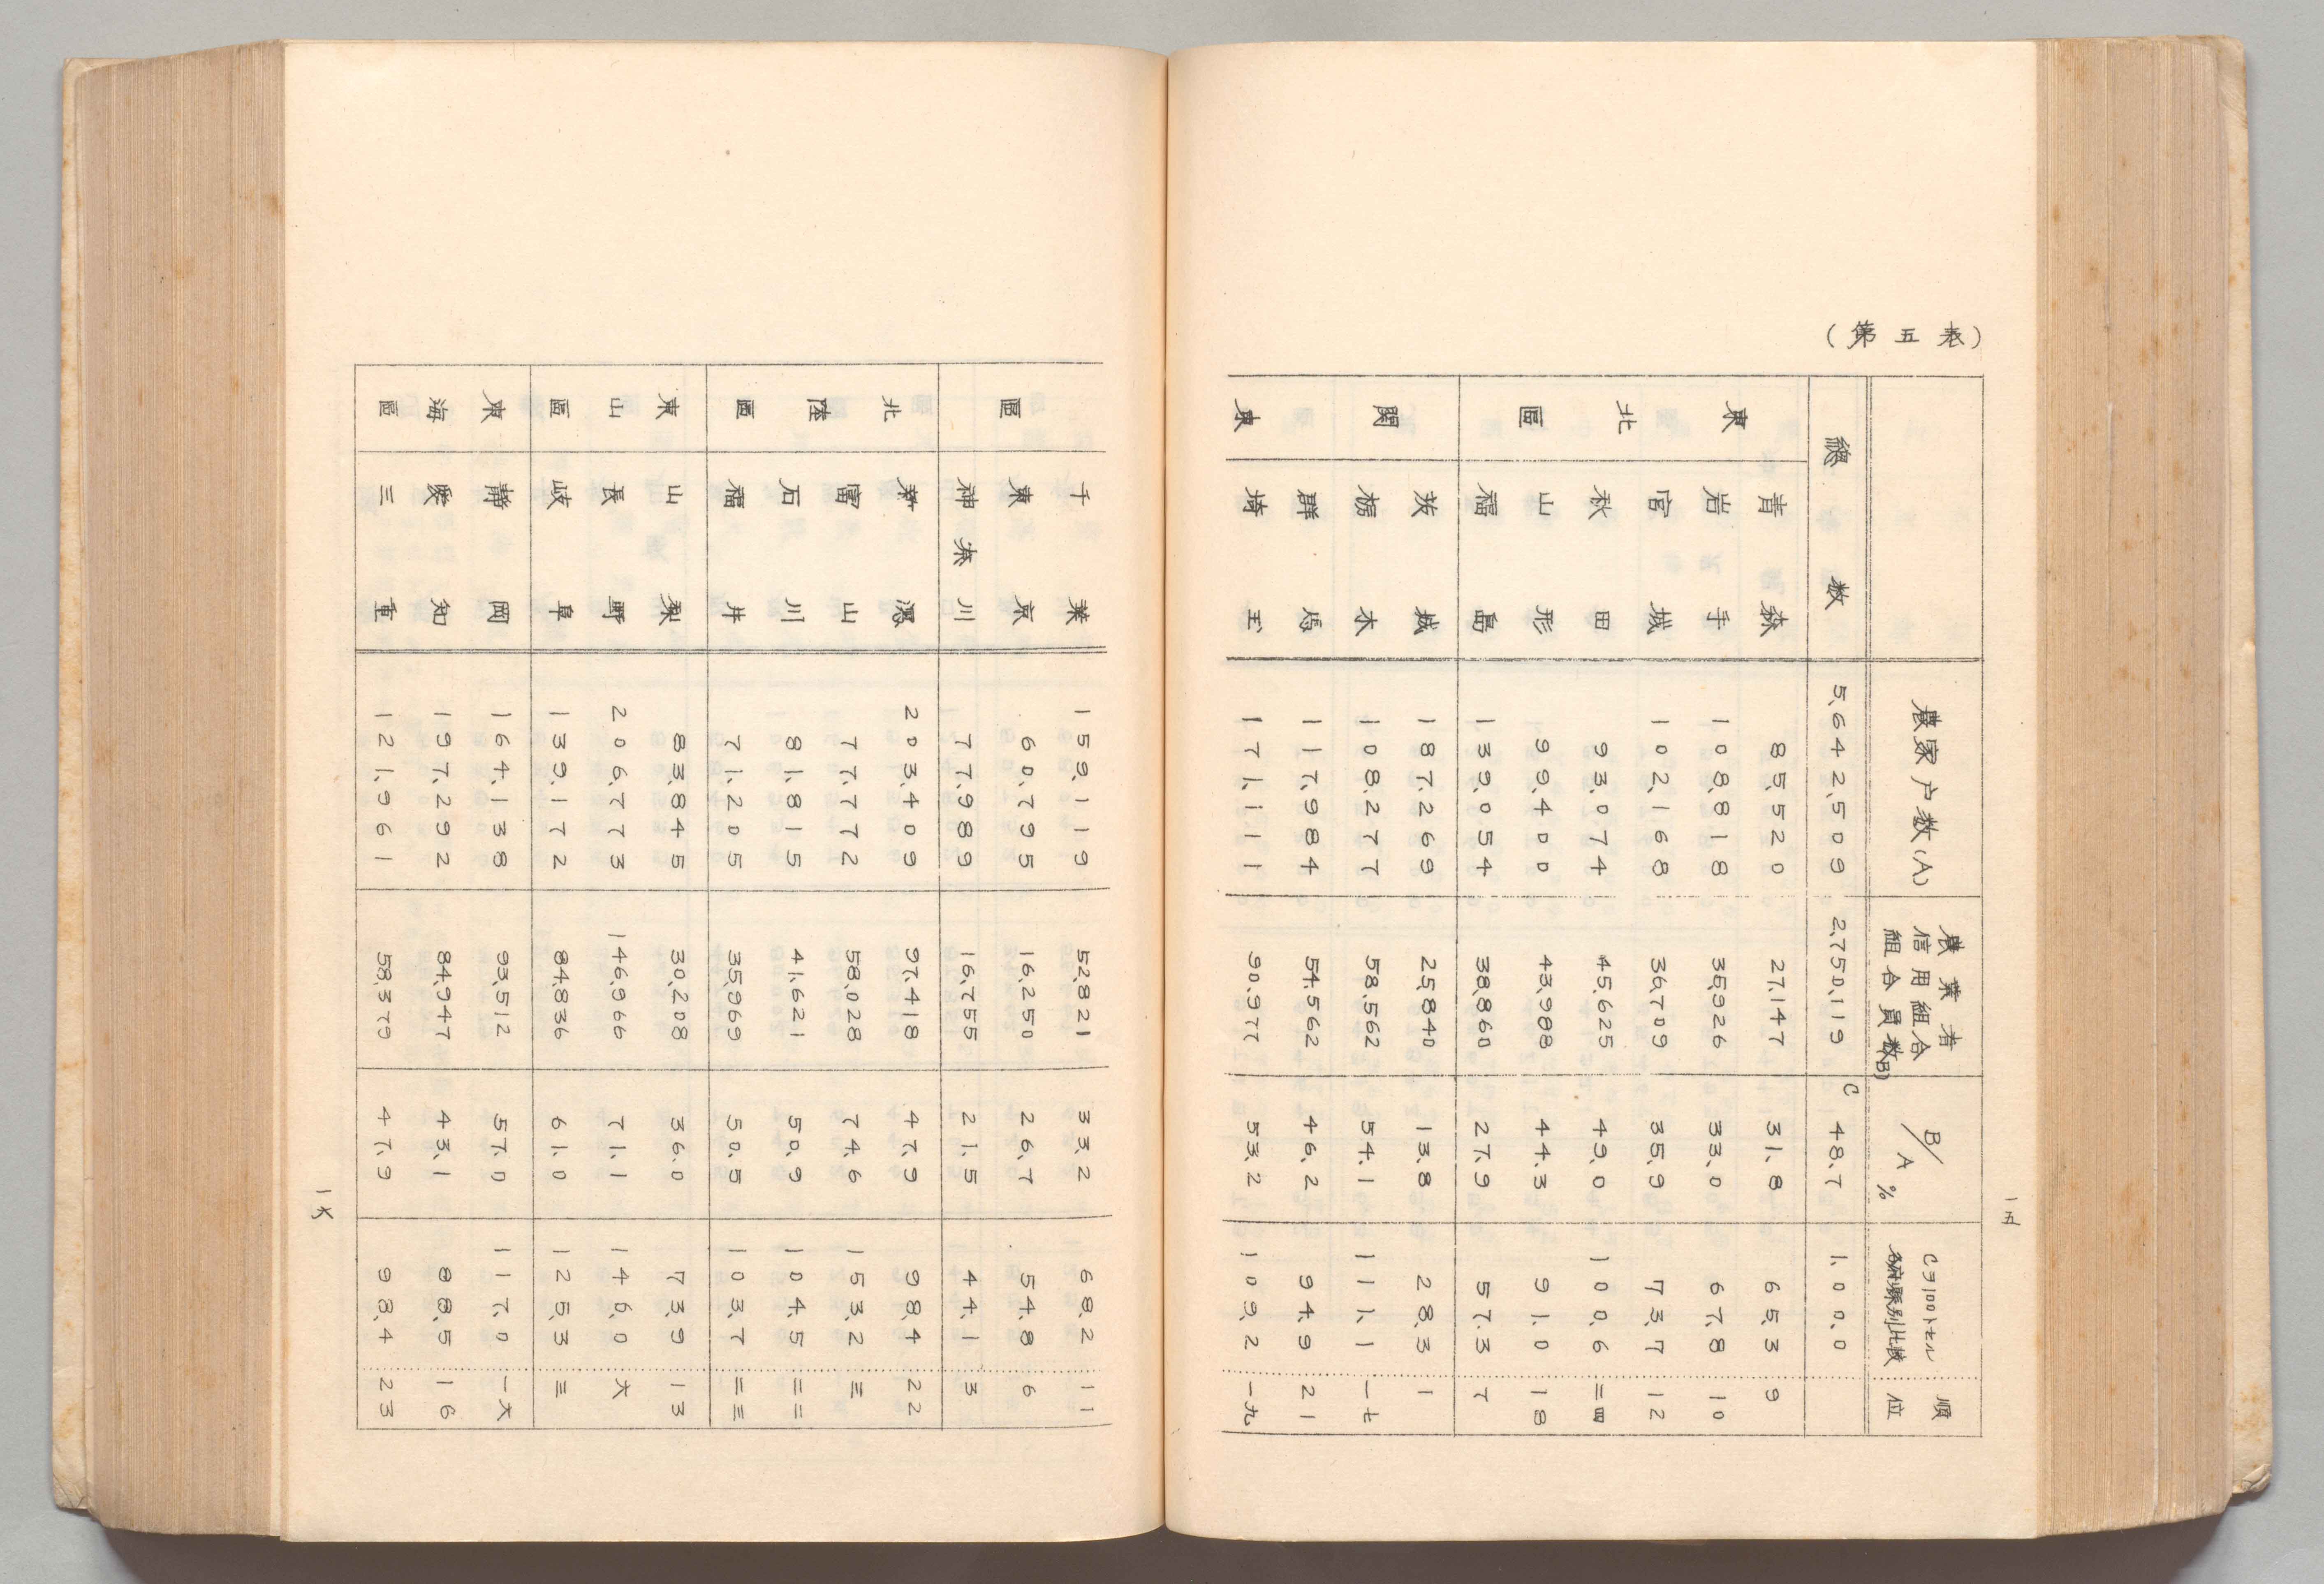 (第五表)
農家戸数(A) 農業者信用組合組合員数(B) C B/A % Cヲ100トセル各府県別比較 順位
總数 5,642,509 2,750,119 48.7 1,00.0
東北區 青森 85,520 27,147 31.8 65.3 9
岩手 108,818 35,926 33.0 67.8 10
宮城 102,168 36,709 35.9 73.7 12
秋田 93,074 45,625 49.0 100.6 二四
山形 99,400 43,988 44.3 91.0 18
福島 139,054 38,860 27.9 57.3 7
関東 茨城 187,269 25,840 13.8 28.3 1
栃木 108,277 58,562 54.1 111.1 一七
群馬 117,984 54,562 46.2 94.9 21
埼玉 171,111 90,977 53.2 109.2 一九
一五
區 千葉 159,119 52,821 33.2 68.2 11
東京 60,795 16,250 26.7 54.8 6
神奈川 77,989 16,755 21.5 44.1 3
北陸區 新潟 203,409 97,418 47.9 98.4 22
富山 77,772 58,028 74.6 153.2 三
石川 81,815 41,621 50.9 104.5 二二
福井 71,205 35,969 50.5 103.7 二三
東山區 山梨 83,845 30,208 36.0 73.9 13
長野 206,773 146,966 71.1 146.0 六
岐阜 139,172 84,836 61.0 125.3 三
東海區 静岡 164,138 93,512 57.0 117.0 一六
愛知 197,292 84,947 43.1 88.5 16
三重 121,961 58,379 47.9 98.4 23
一六